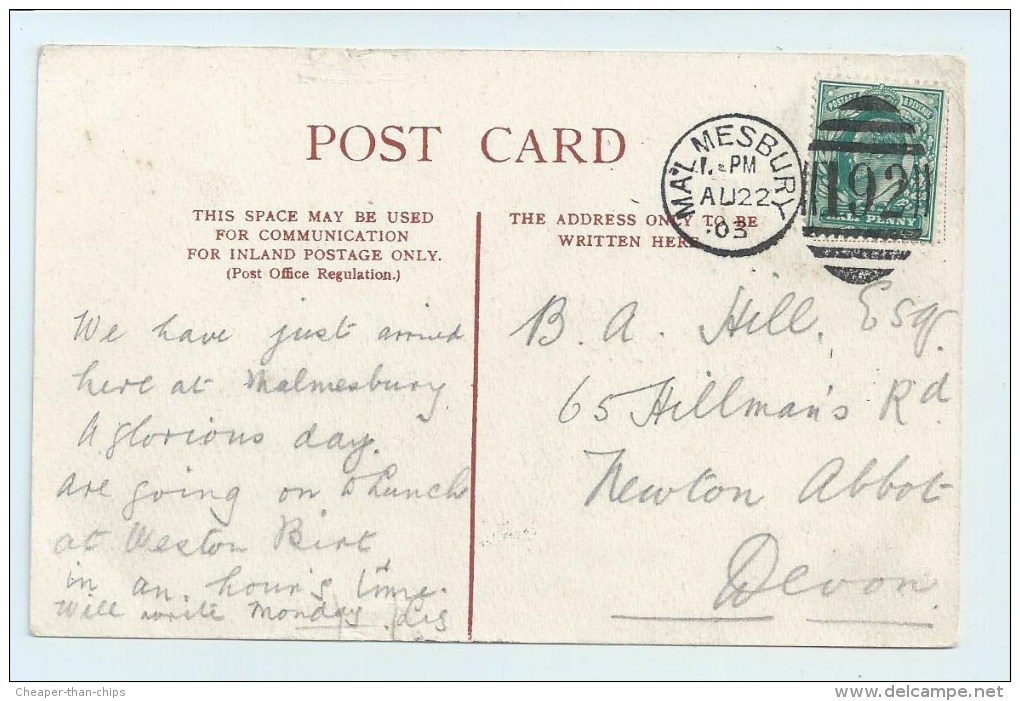 POST CARD
THIS SPACE MAY BE USED
FOR COMMUNICATION
FOR INLAND POSTAGE ONLY.
(Post Office Regulation.)
We have just arrived
here at Malmesbury
A glorious day.
are going on to Lunch
at Weston Birt
in an hour's time.
Will write Monday
THE ADDRESS ONLY TO BE
WRITTEN HERE
B. A. Hill, Esq.
65 Hillman's Rd
Newton Abbot
Devon.
MALMESBURY
PM
AU 22
03
POSTAGE & REVENUE
192
HALF PENNY
Cheaper-than-chips
www.delcampe.net